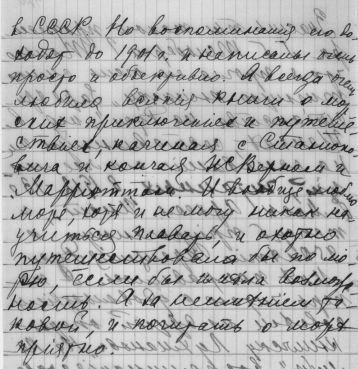 в СССР. Но воспоминания его до-
ходят до 1901 г. и написаны очень
просто и объективно. Я всегда очень
любила всякия книги о мор-
ских приключениях и путеше-
ствиях, начиная с Станюко-
вича и кончая Ж. Верном и
Марриэттом. И вообще люблю
море, хотя и не могу никак на-
учиться плавать, и охотно
путешествовала бы по мо-
рю, если бы имела возмож-
ность. А за неимением та-
ковой и почитать о море
приятно.